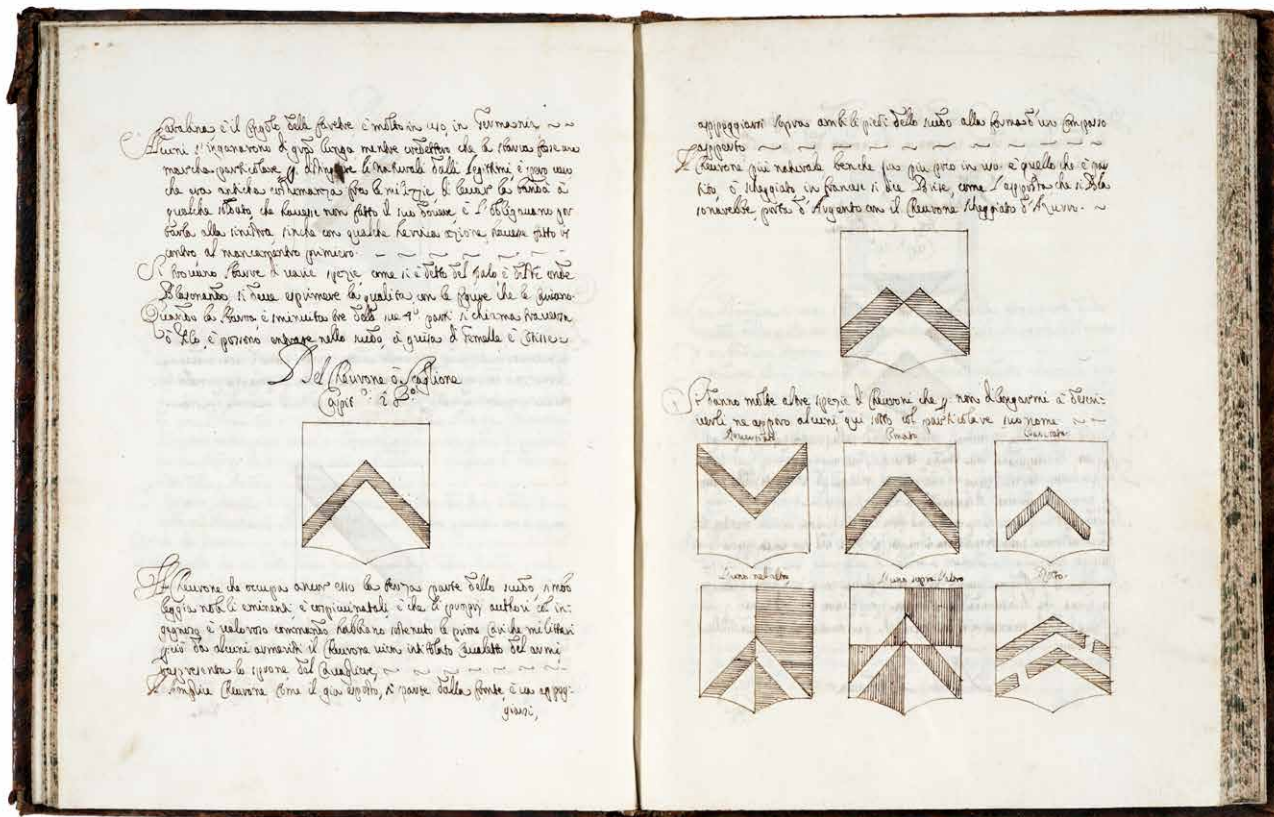 Cavalina è il Cigolo della favebre è molto in uso in Germania
Alcuni s'inganarono di gran lunga mentre credettero che la sbarra fosse una
marca particolare p. distinguere li naturali dalli legithimi è però vero
che era antica costumanza fra le milizzie di levar la banda à
qualche soldato, che havesse non fatto il suo dovere, è l'obligavano por
tarla alla sinistra, sinche con qualche heroica azzione, havesse fatto
contro al mancamento primiero.
Si trovano sbarre di varie spezie come si è detto del Palo è onde
Blasonando si deve esprimere la qualità con le figure che le
Quando la sbarra è sminuita tre delle sue 4° parti si chiama traversa
ò filo, è possono entrare nello scudo, à guisa di Gemelle è Cotisse
Del Cheurone ò Scaglione
Capit.° 8°
Il Cheurone che occupa ancor esso la terza parte dello scudo simbo
leggia nobili eminenti è è che li proprij authori col in-
gegnoso è valoroso commando habbiano ottenuto le prime cariche militari
però da alcuni armeristi il Cheurone vien intitolato Cavaletto del armi
rappresenta lo sprone del Cavaliere,
Il semplice Cheurone come il già esposto, si parte dalla fronte è va appog-
giarsi,
appoggiarsi sopra ambi li piedi dello scudo alla forma d'un Compasso
apperto
Il Cheurone più naturale benche sia più poco in uso è quello che è par
tito ò scheggiato in francese si dice Brise, come l'apposta che si Bla
sonarebbe porta d'Argento con il Cheurone scheggiato d'Azurro.
Si danno molte altre spezie di Cheuroni che p. non dilongarmi à descri-
verli ne apporo alcuni qui sotto col particolare suo nome
Cimato
L'uno nel'alto
L'uno sopra l'altro
Rotto